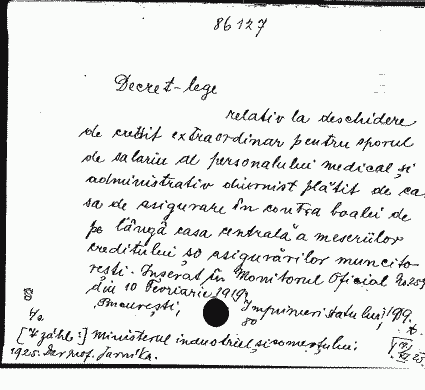 86127
Decret-lege
relativ la deschidere
de credit extraordinar pentru sporul
de salariu al personalului medical și
administrativ diurnist plătit de ca-
sa de asigurare în contra boalei de
pe lângă casa centrală a meseriilor
creditului și asigurărilor muncito-
rești. Inserat în Monitorul Oficial No 259
din 10 Fevriarie 1919.
București, Imprimeri statului, 1919.
80
[Gezählt:] Ministerul industriei și comerțului.
1925. Der Prof. Jarnika.